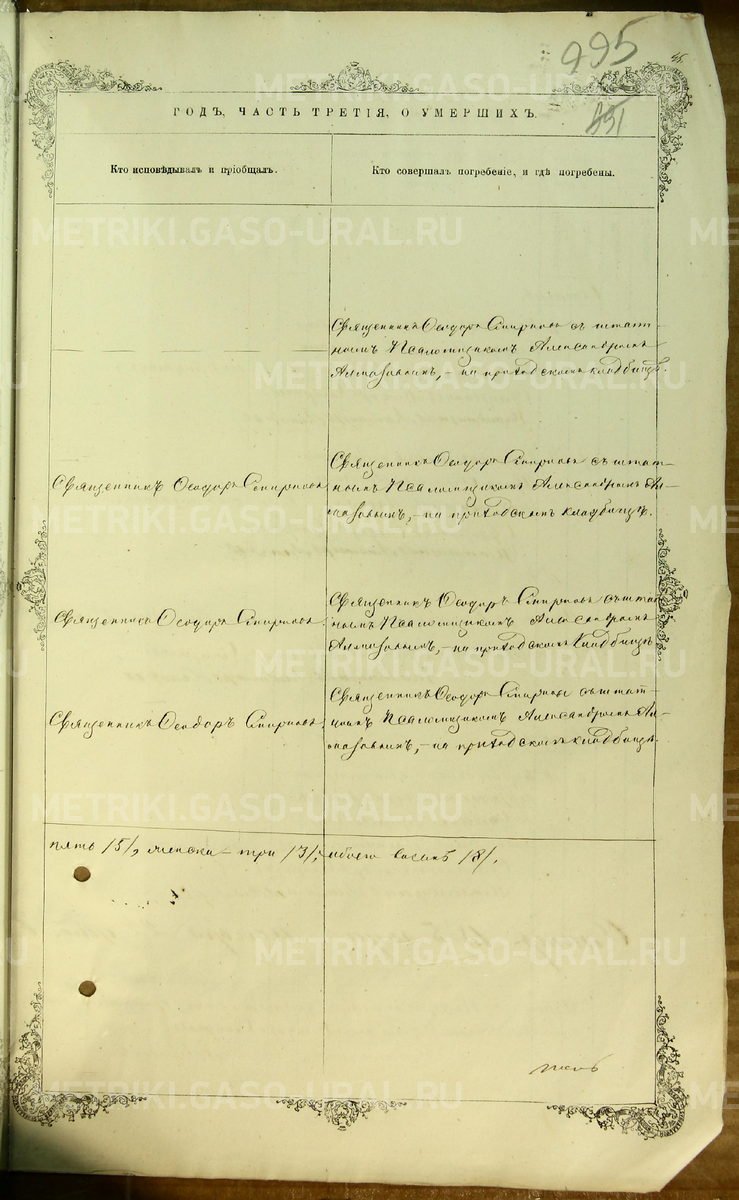 995
451
ГОДЪ, ЧАСТЬ ТРЕТІЯ, О УМЕРШИХЪ.
Кто исповѣдывалъ и пріобщалъ.
Кто совершалъ погребеніе, и гдѣ погребены.
Священникъ Ѳеодоръ Смирновъ съ штат-
нымъ Псаломщикомъ Александромъ
Алмазовымъ, – на приходскомъ кладбищѣ.
Священникъ Ѳеодоръ Смирновъ
Священникъ Ѳеодоръ Смирновъ съ штат-
нымъ Псаломщикомъ Александромъ Ал-
мазовымъ, – на приходскомъ кладбищѣ.
Священникъ Ѳеодоръ Смирновъ
Священникъ Ѳеодоръ Смирновъ съ штат
нымъ Псаломщикомъ Александромъ
Алмазовымъ, – на приходскомъ кладбищѣ
Священникъ Ѳеодоръ Смирновъ
Священникъ Ѳеодоръ Смирновъ съ штат-
нымъ Псаломщикомъ Александромъ Ал-
мазовымъ, – на приходскомъ кладбищѣ.
пять /5/, женска – три /3/; обоего восемь /8/.
METRIKI.GASO-URAL.RU